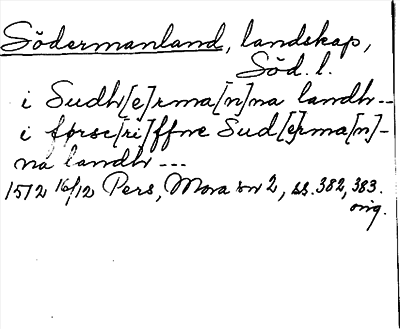 Södermanland, landskap,
Söd. l.
i Sudh[e]rma[n]na landh --
i førsc[ri]ffne Sud[e]rma[n]-
na landh ---
1512 16/12 Pers, Mora nr 2, ss. 382, 383.
orig.